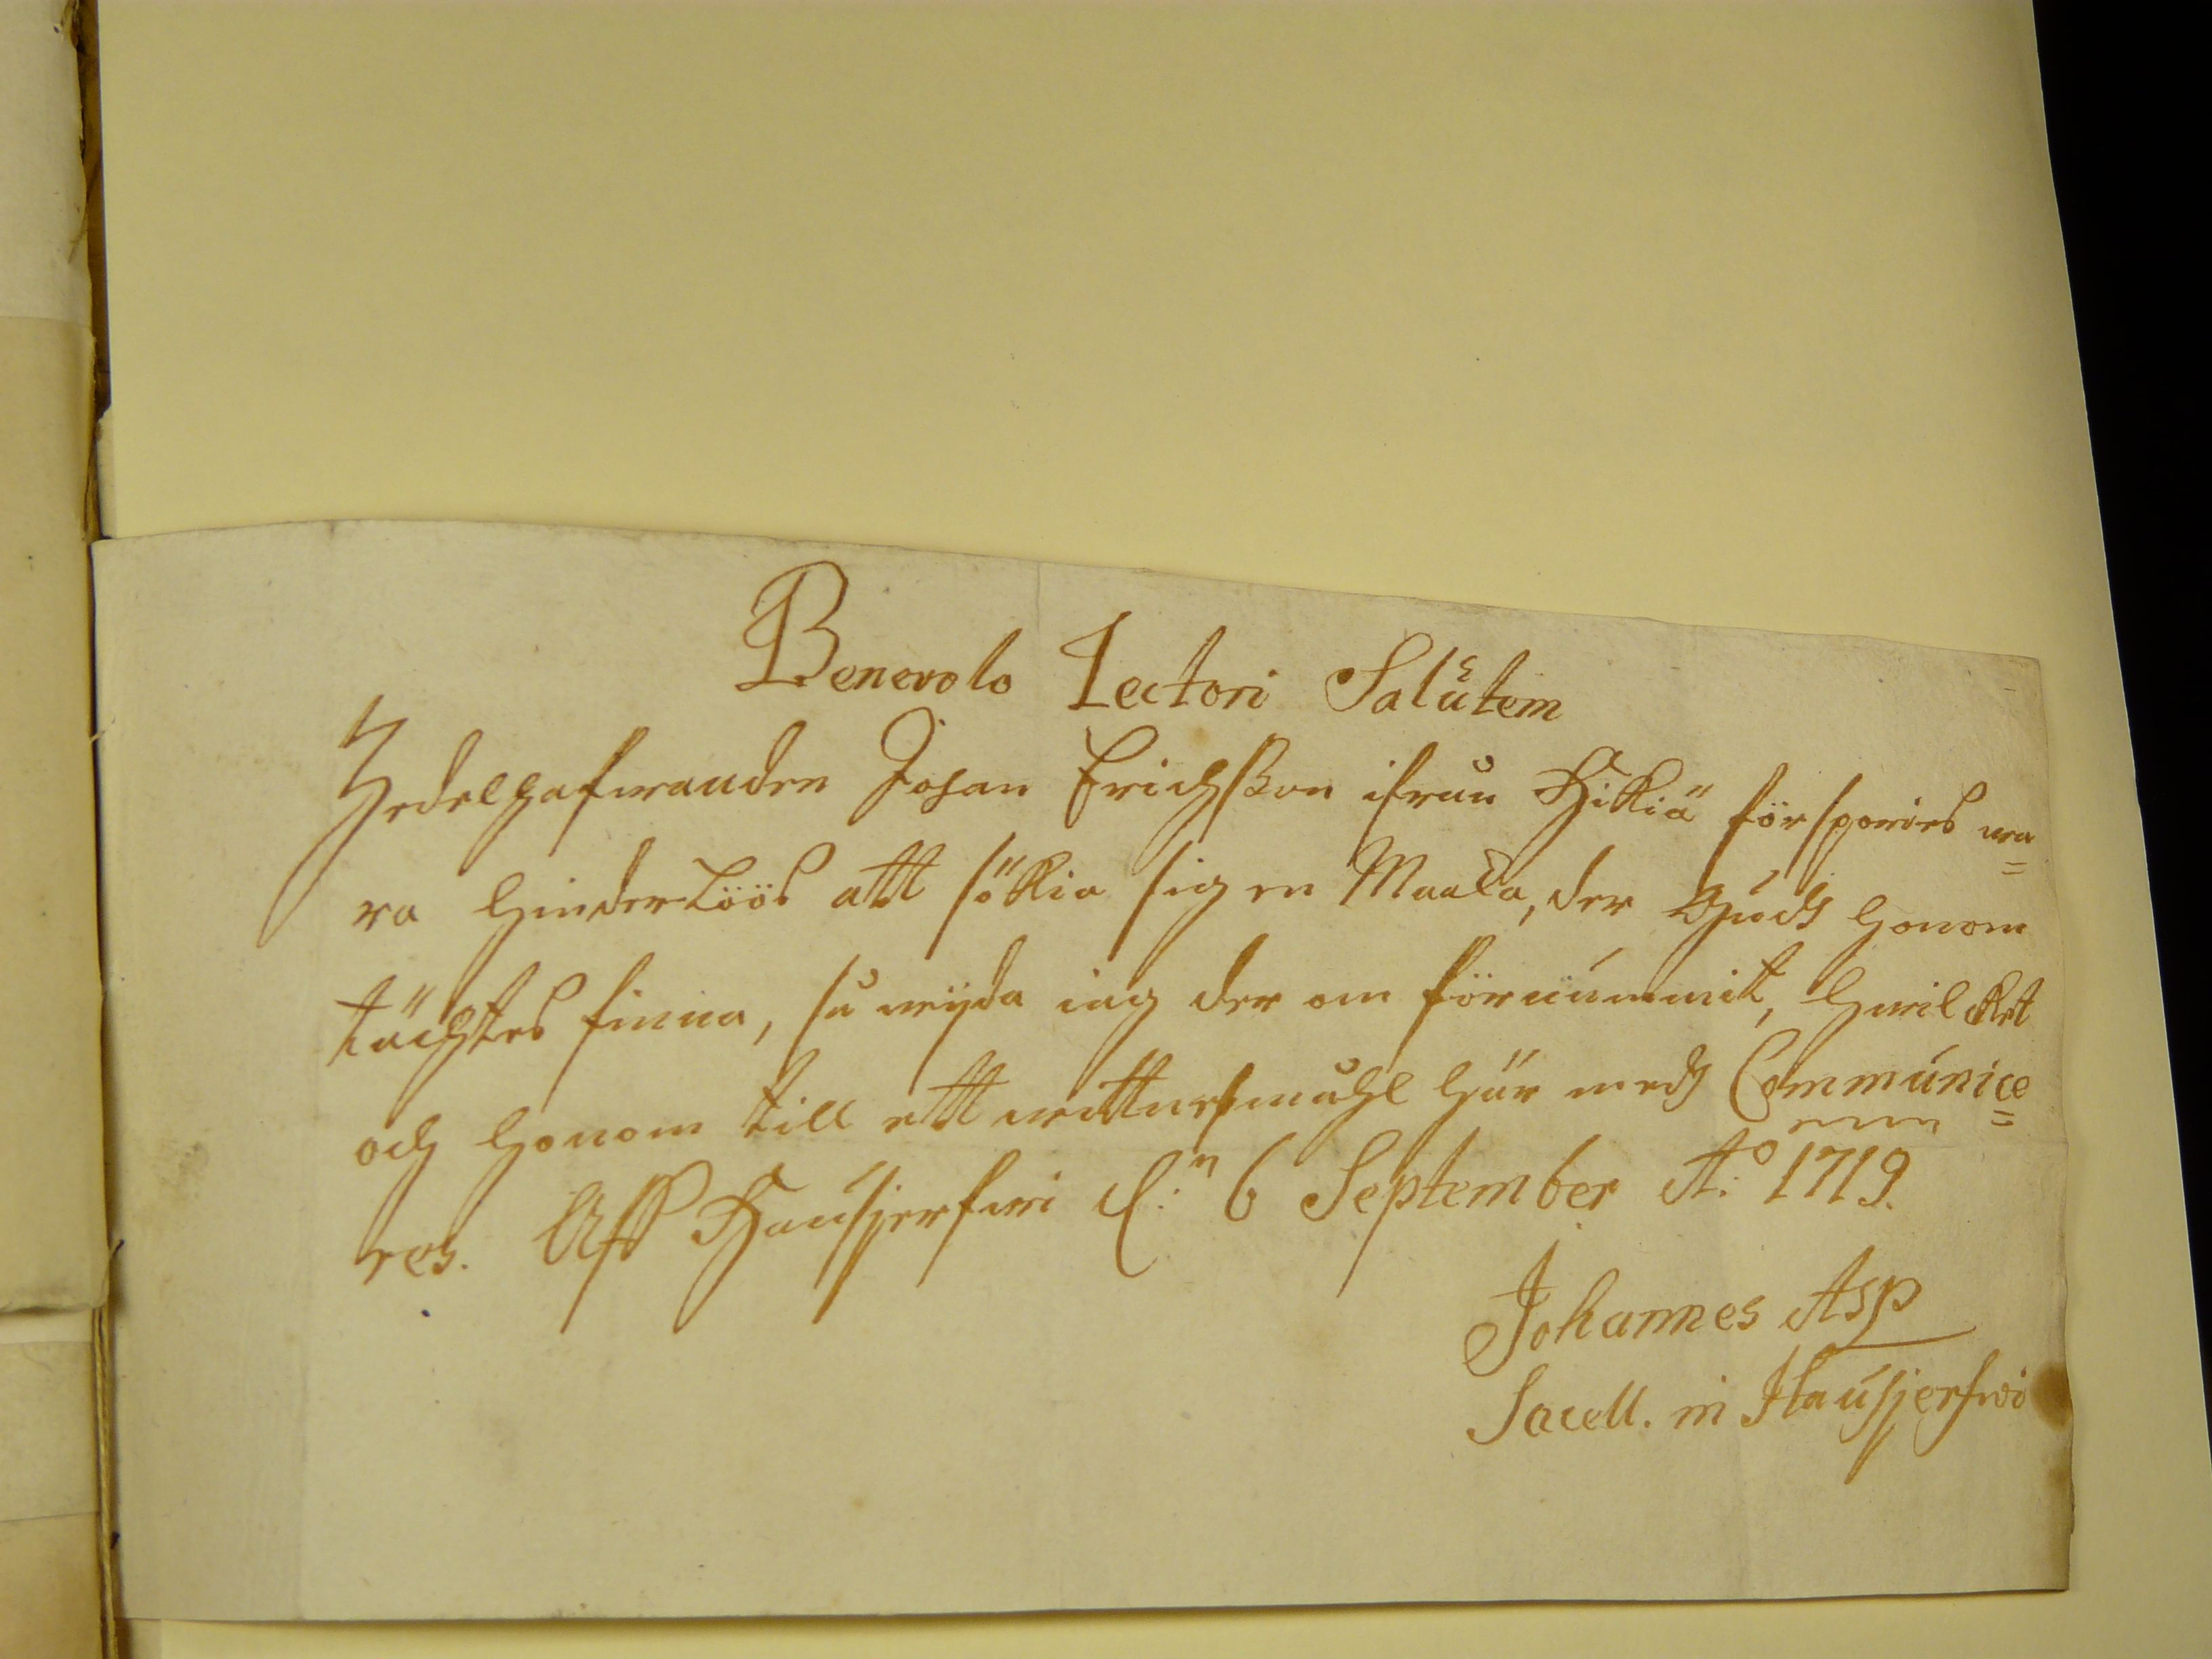 Benevolo Lectori Salutem
Zedelhafwanden Johan Erichßon ifrån Hikiä förspories wa=
ra hinderlöös att sökia sig en Maaka, der Gudh honom
tächtes finna, så wijda iag der om förnummit, hwilcket
och honom till ett wittnesmåhl här medh Communice=
res. Aff Hausjerfwi d:n 6 September Ao: 1719.
Johannes Asp
Sacell. in Hausjerfwi